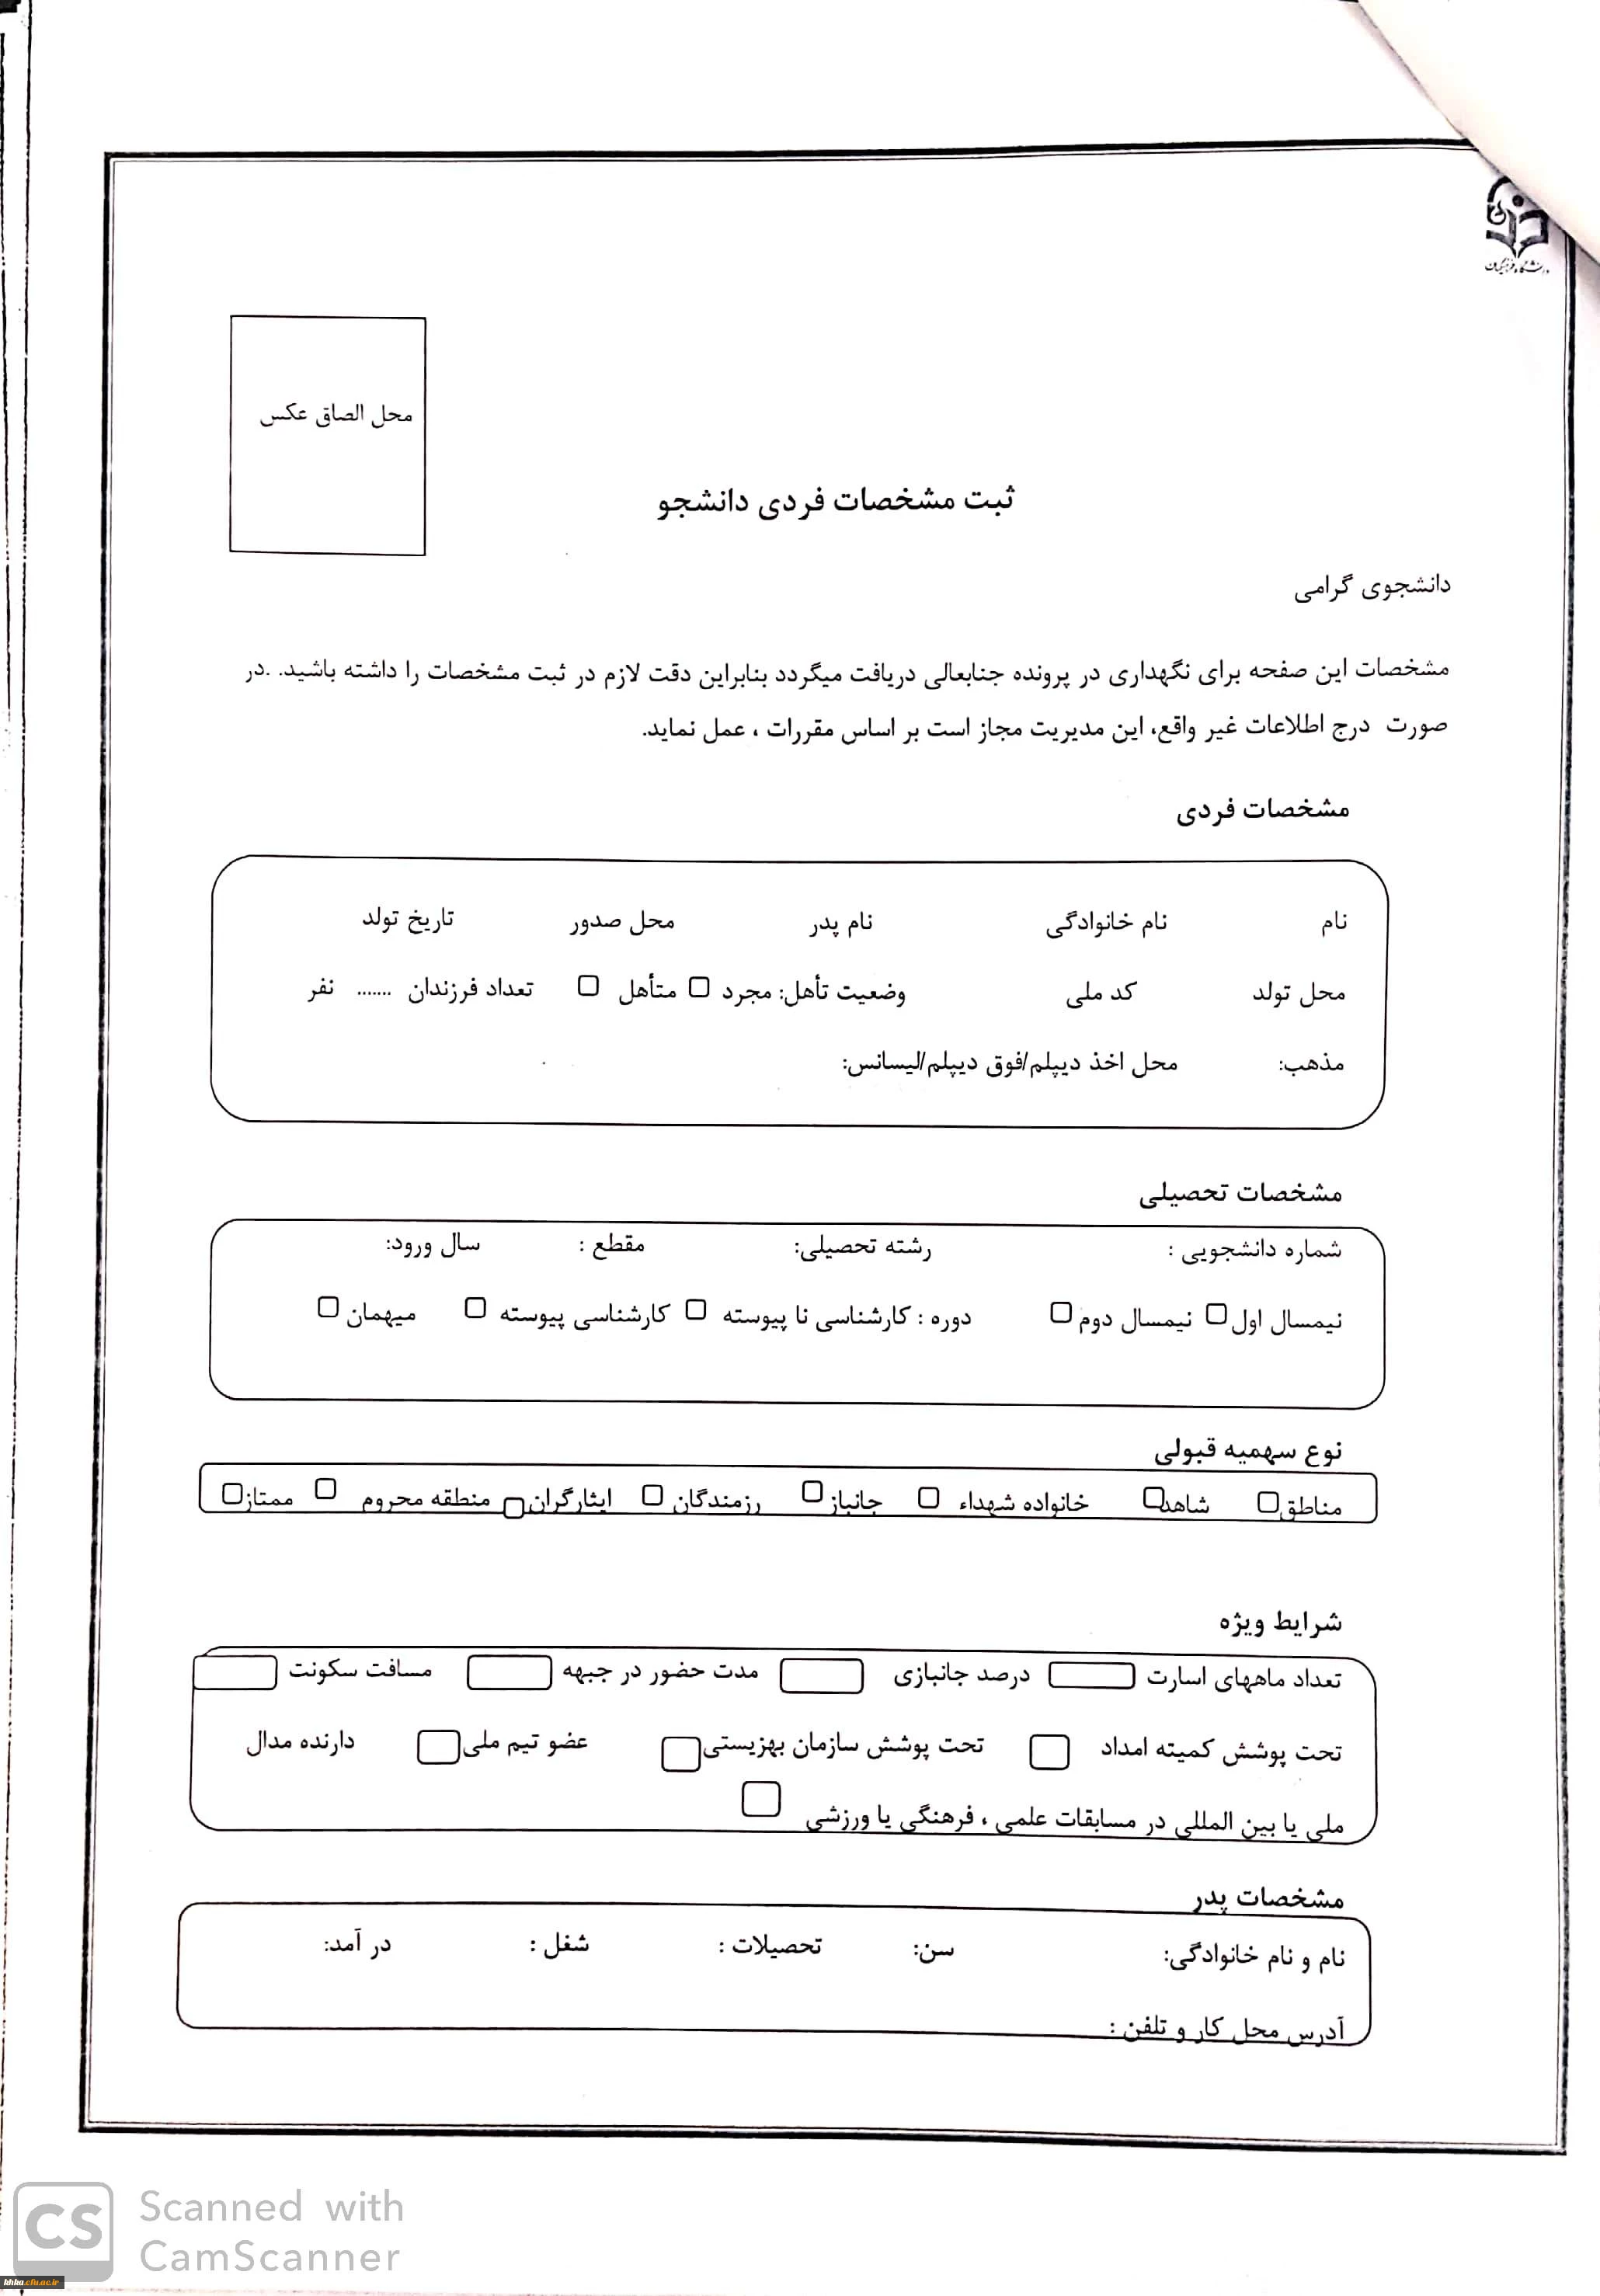 دانشگاه فرهنگیان
محل الصاق عکس
ثبت مشخصات فردی دانشجو
دانشجوی گرامی
مشخصات این صفحه برای نگهداری در پرونده جنابعالی دریافت میگردد بنابراین دقت لازم در ثبت مشخصات را داشته باشید. .در
صورت درج اطلاعات غیر واقع، این مدیریت مجاز است بر اساس مقررات ، عمل نماید.
مشخصات فردی
نام نام خانوادگی نام پدر محل صدور تاریخ تولد
محل تولد کد ملی وضعیت تأهل: مجرد متأهل تعداد فرزندان ....... نفر
مذهب: محل اخذ دیپلم/فوق دیپلم/لیسانس:
مشخصات تحصیلی
شماره دانشجویی : رشته تحصیلی: مقطع : سال ورود:
نیمسال اول نیمسال دوم دوره : کارشناسی نا پیوسته کارشناسی پیوسته میهمان
نوع سهمیه قبولی
مناطق شاهد خانواده شهداء جانباز رزمندگان ایثارگران منطقه محروم ممتاز
شرایط ویژه
تعداد ماههای اسارت درصد جانبازی مدت حضور در جبهه مسافت سکونت
تحت پوشش کمیته امداد تحت پوشش سازمان بهزیستی عضو تیم ملی دارنده مدال
ملی یا بین المللی در مسابقات علمی ، فرهنگی یا ورزشی
مشخصات پدر
نام و نام خانوادگی: سن: تحصیلات : شغل : در آمد:
آدرس محل کار و تلفن :
CS
Scanned with
CamScanner
khha.cfu.ac.ir